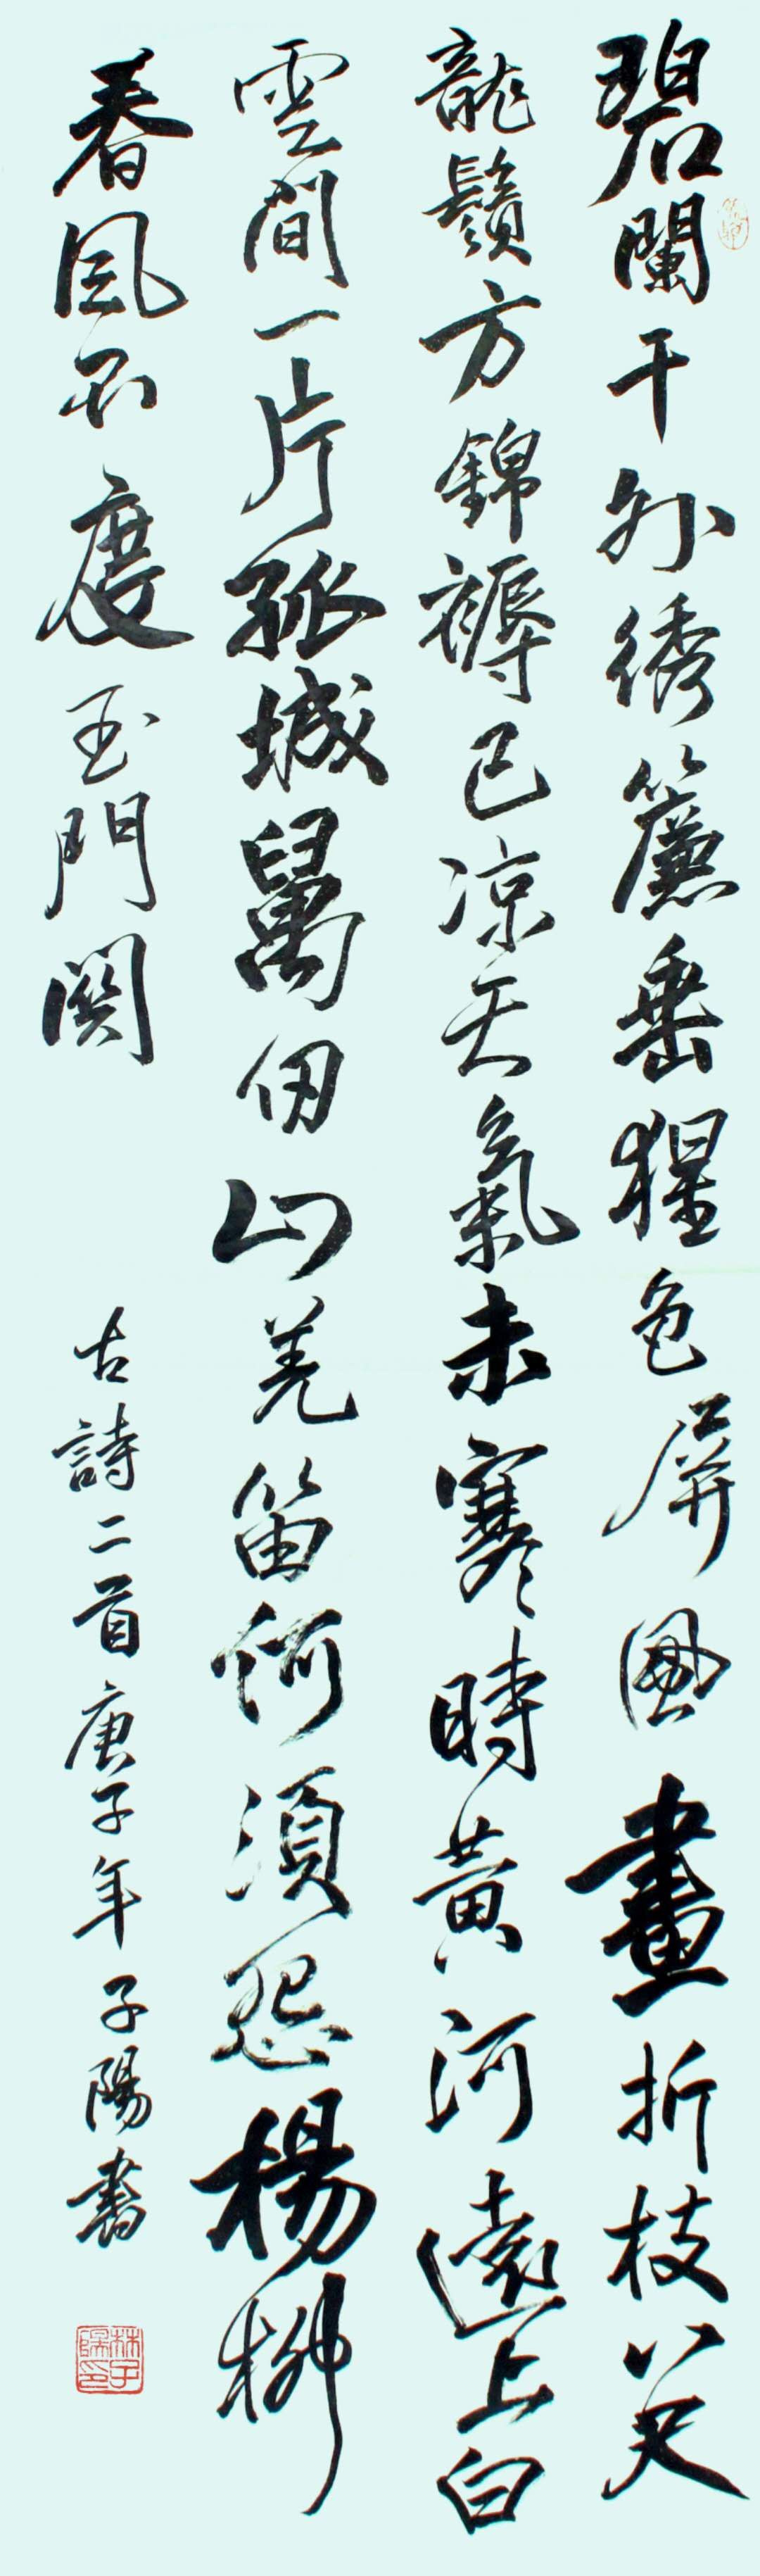 碧闌干外绣簾垂猩色屏風畫折枝八尺
龍鬚方錦褥已凉天氣未寒時黃河遠上白
雲間一片孤城萬仞山羌笛何須怨楊柳
春風不度玉門関
古詩二首庚子年子陽書
林子陽印